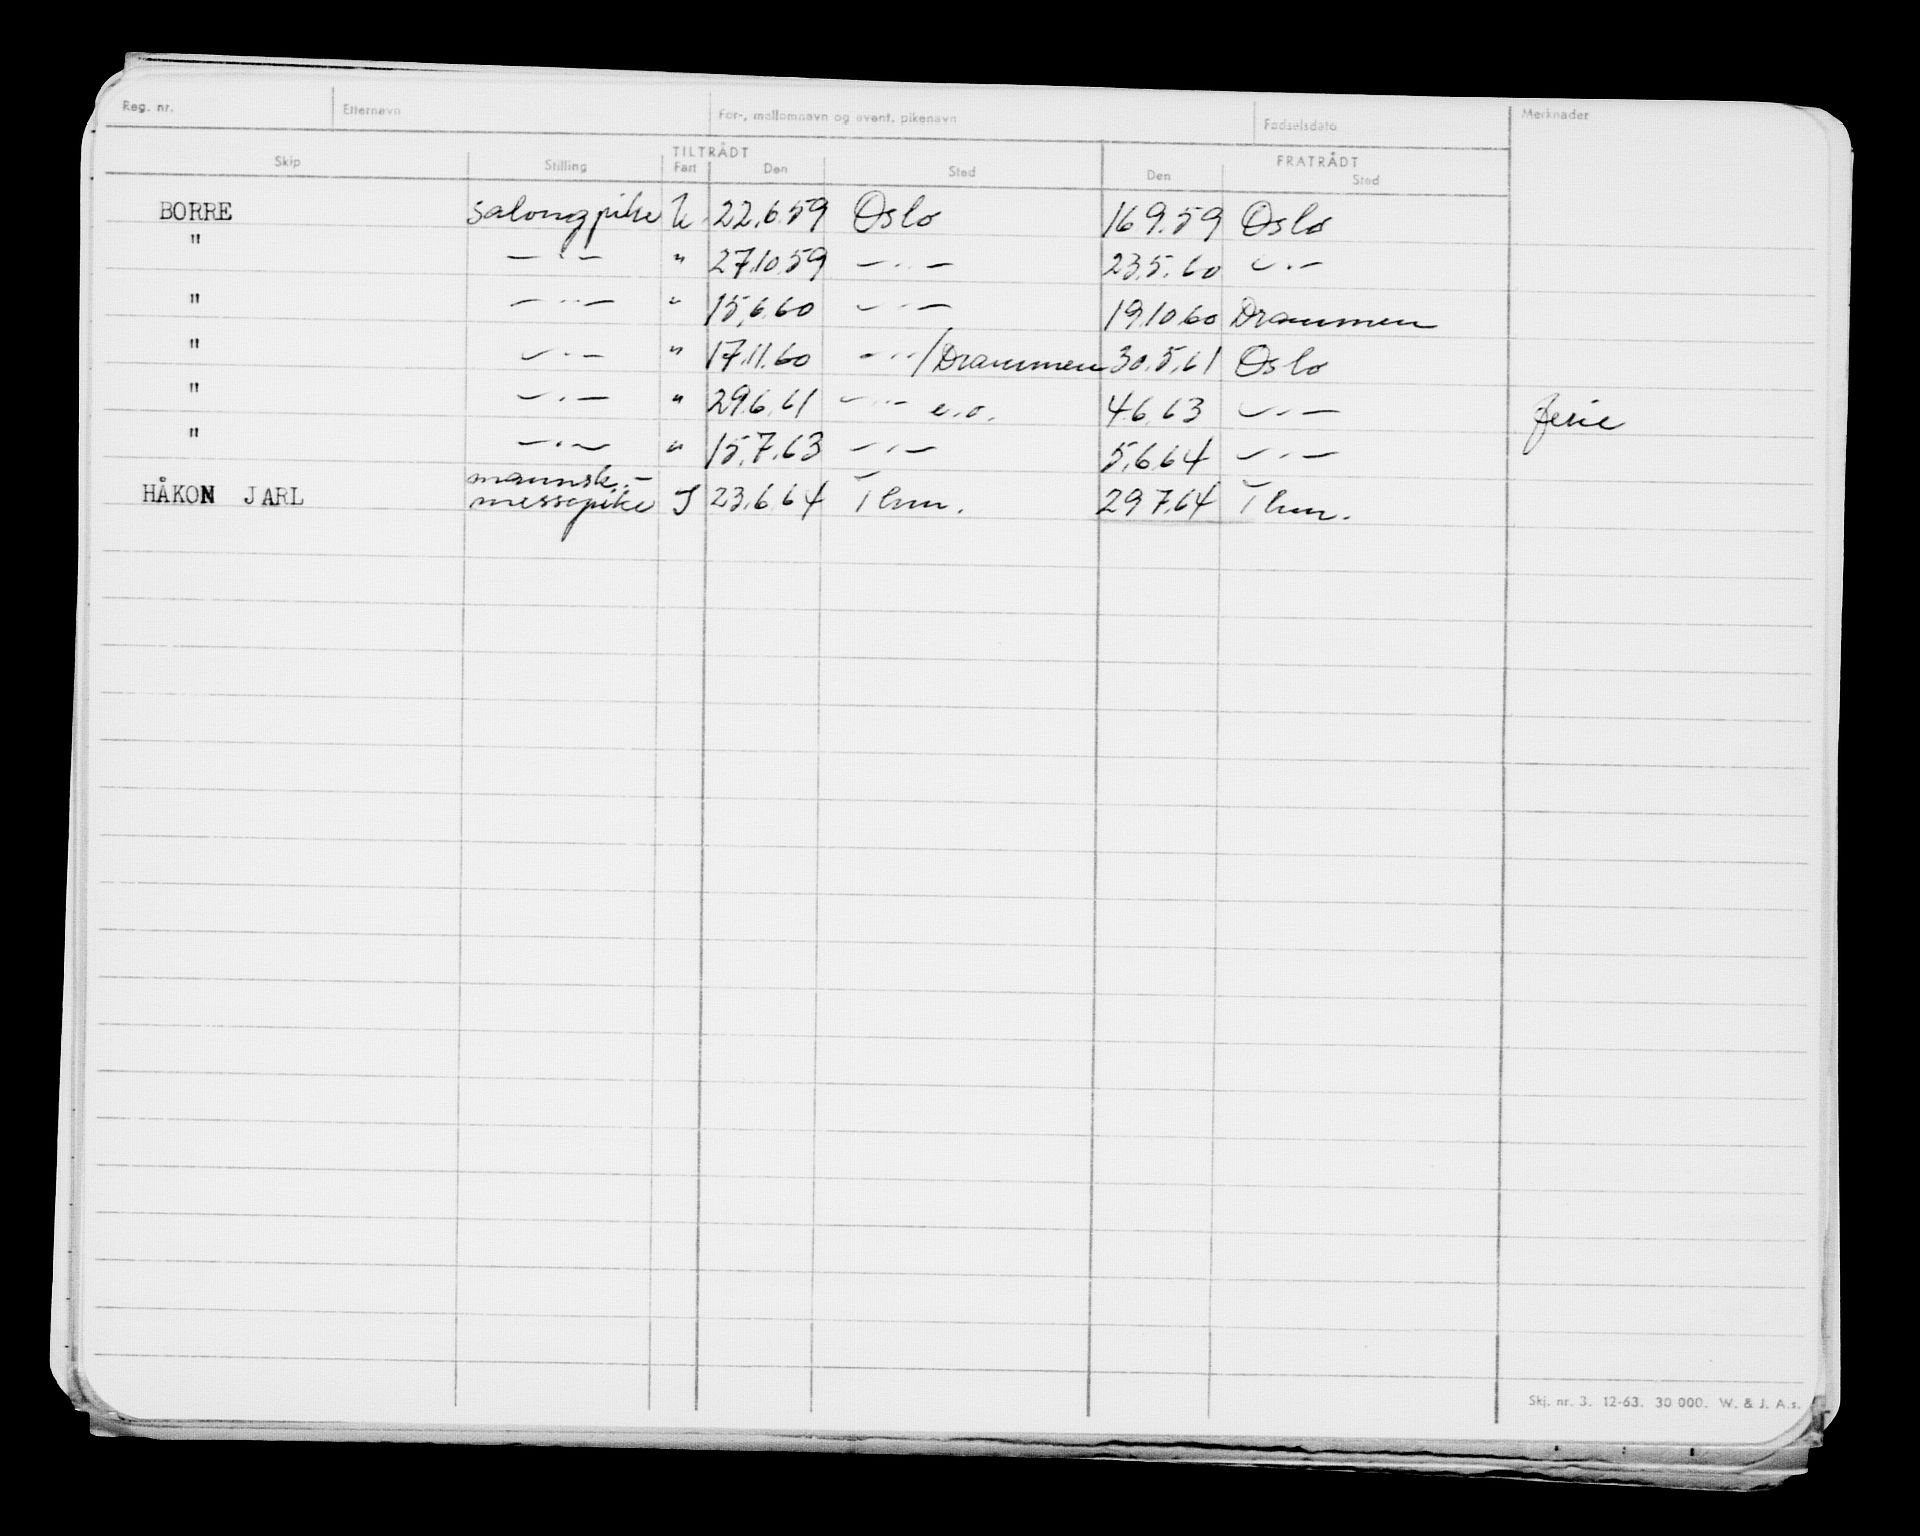 Reg. nr. Etternavn For-, mellomnavn og event. pikenavn Fødselsdato Merknader
TILTRÅDT FRATRÅDT
Skip Stilling Fart Den Sted Den Sted
BORRE salongpike U. 22.6.59 Oslo 16.9.59 Oslo
" — · — " 27.10.59 — · · — 23.5.60 — · —
" — · · — " 15.6.60 — · · — 19.10.60 Drammen
" — · — " 17.11.60 — · · /Drammen 30.5.61 Oslo
" — · — " 29.6.61 — · · — e.o. 4.6.63 — · — ferie
" — · — " 15.7.63 — · — 5.6.64 — · —
mannsk.-
HÅKON JARL messepike I 23.6.64 Thm. 29.7.64 Thm.
Skj. nr. 3. 12-63. 30 000. W. & J. A.s.